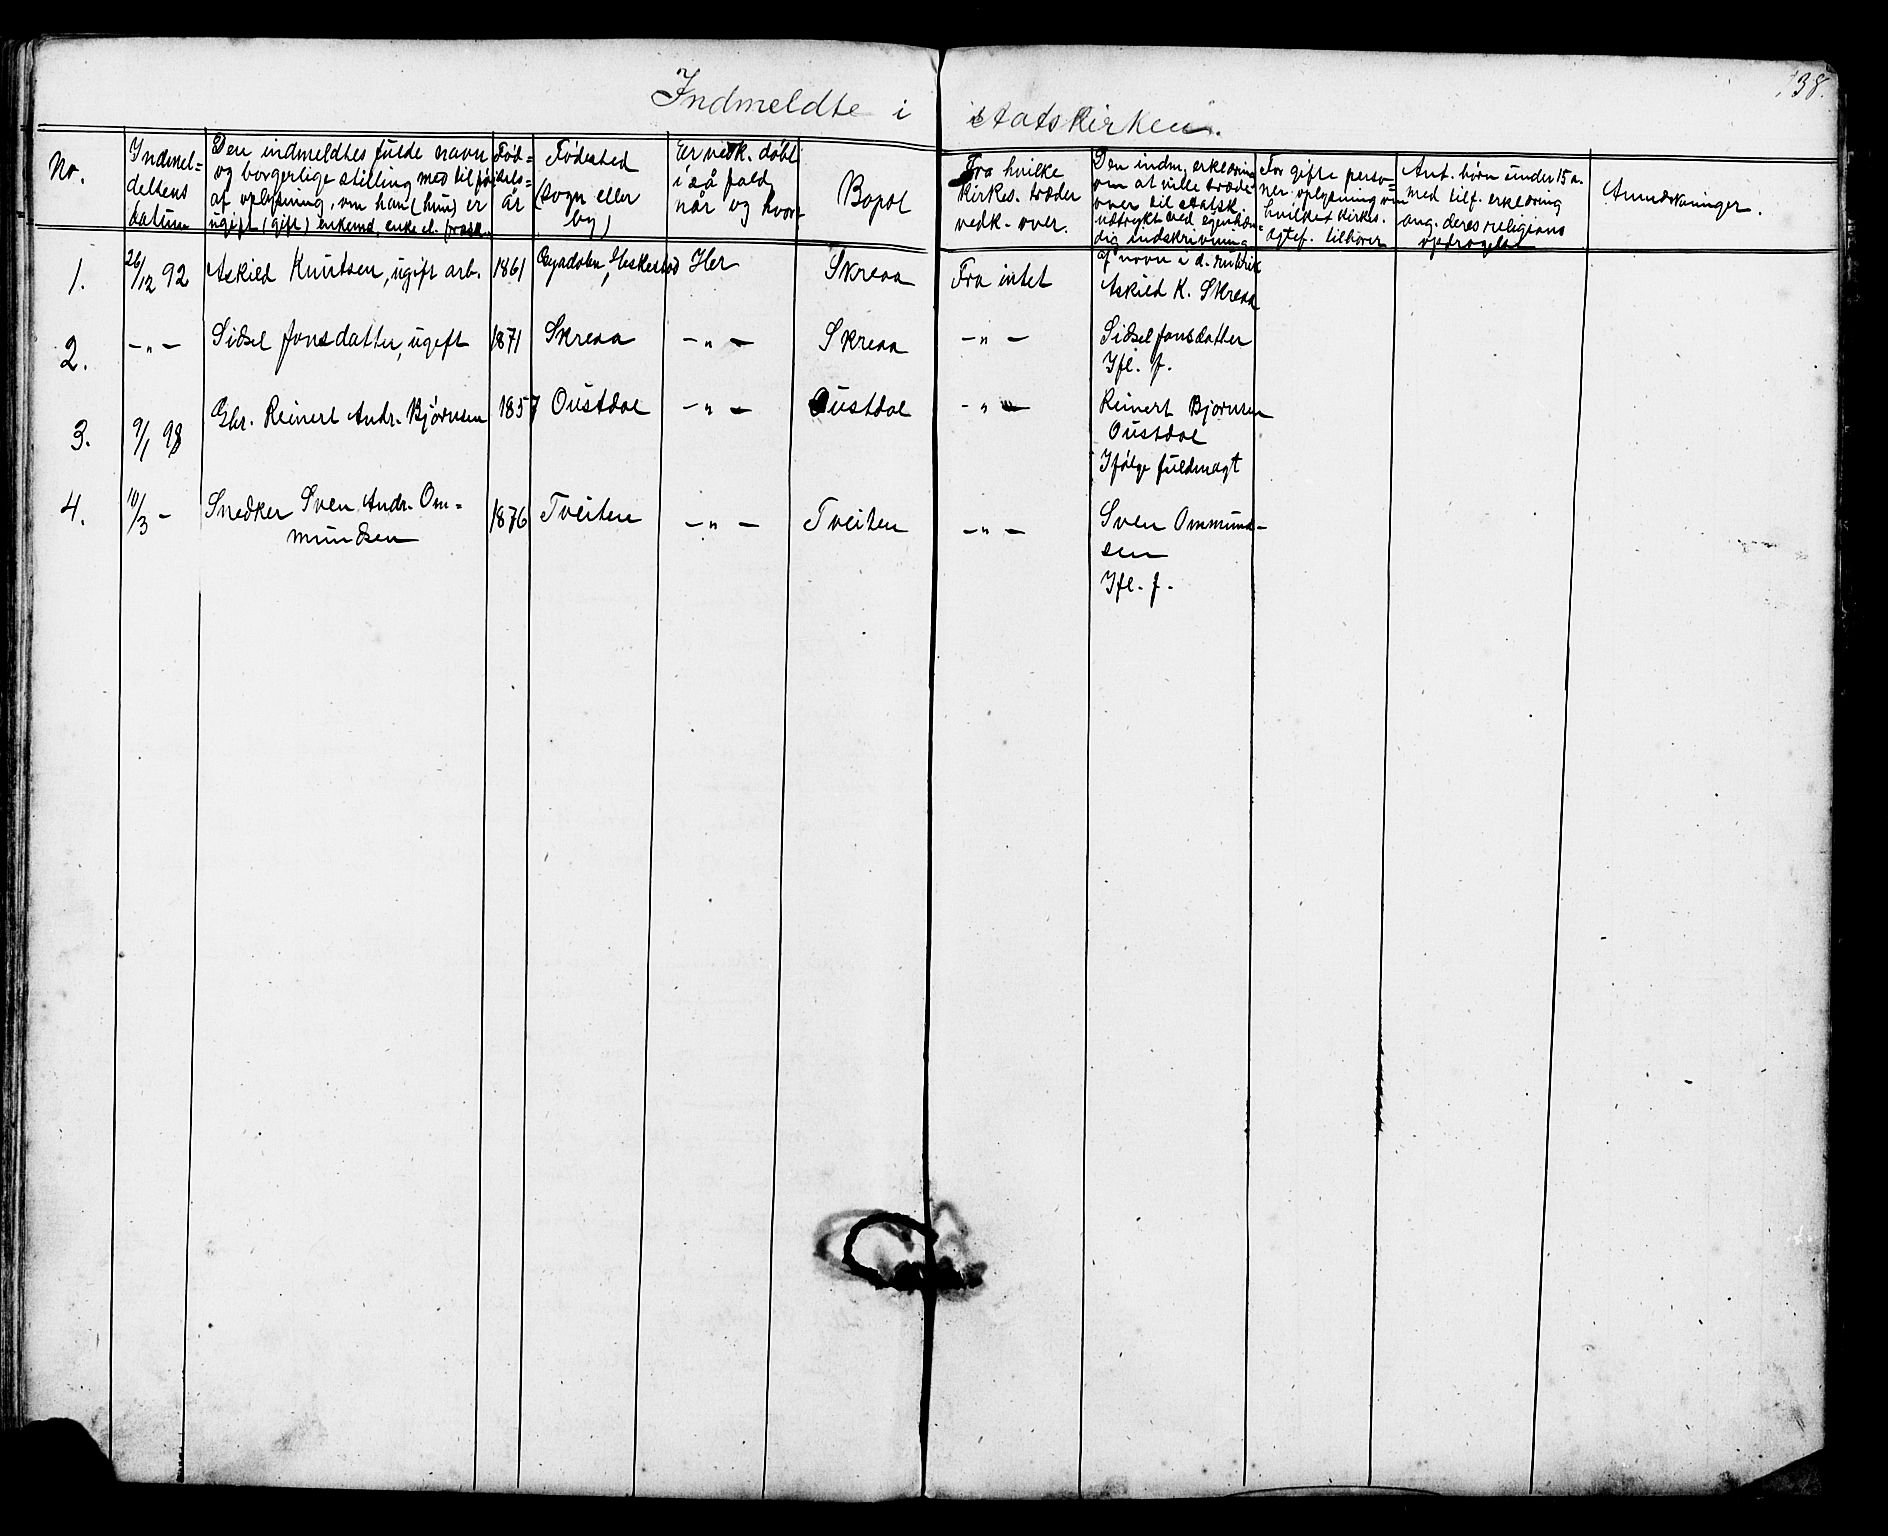 138.
Indmeldte i statskirken.
No.
Indmel-
deltens
datum
Den indmeldtes fulde navn
og borgerlige stilling med tilføi-
af oplysning, om han (hun) er
ugift (gift) enkemd, enke el. frask.
Fød-
sels-
år
Fødested
(sogn eller
by)
Er vedk. døbt
i så fald
når og hvor
Bopæl
Fra hvilke
kirkes. træder
vedk. over.
Den indm. erklæring
om at ville træde
over til statsk.
udtrykt ved egenhæn-
dig indskrivning
af navn i d. rubrik
For gifte perso-
ner, oplysning om
hvilket kirkes.
ægtef. tilhører
Ant. børn under 15 a.
med tilf. erklæring
ang. deres religions
opdragelse
Anmærkninger.
1. 26/12 92 Askild Knutsen, ugift arb. 1861 Gyadalen, Heskestad Her Skreaa Fra intet Askild K. Skreaa
2. -"- Sidsel Jonsdatter, ugift 1871 Skreaa -"- Skreaa -"- Sidsel Jonsdatter
Ifl. f.
3. 9/1 98 Gbr. Reinert Andr. Bjørnsen 1857 Oustdal -"- Oustdal -"- Reinert Bjørnsen
Oustdal
Ifølge fuldmagt
4. 10/3 - Snedker Sven Andr. Om-
mundsen 1876 Tveiten -"- Tveiten -"- Sven Ommund-
sen
Ifl. f.